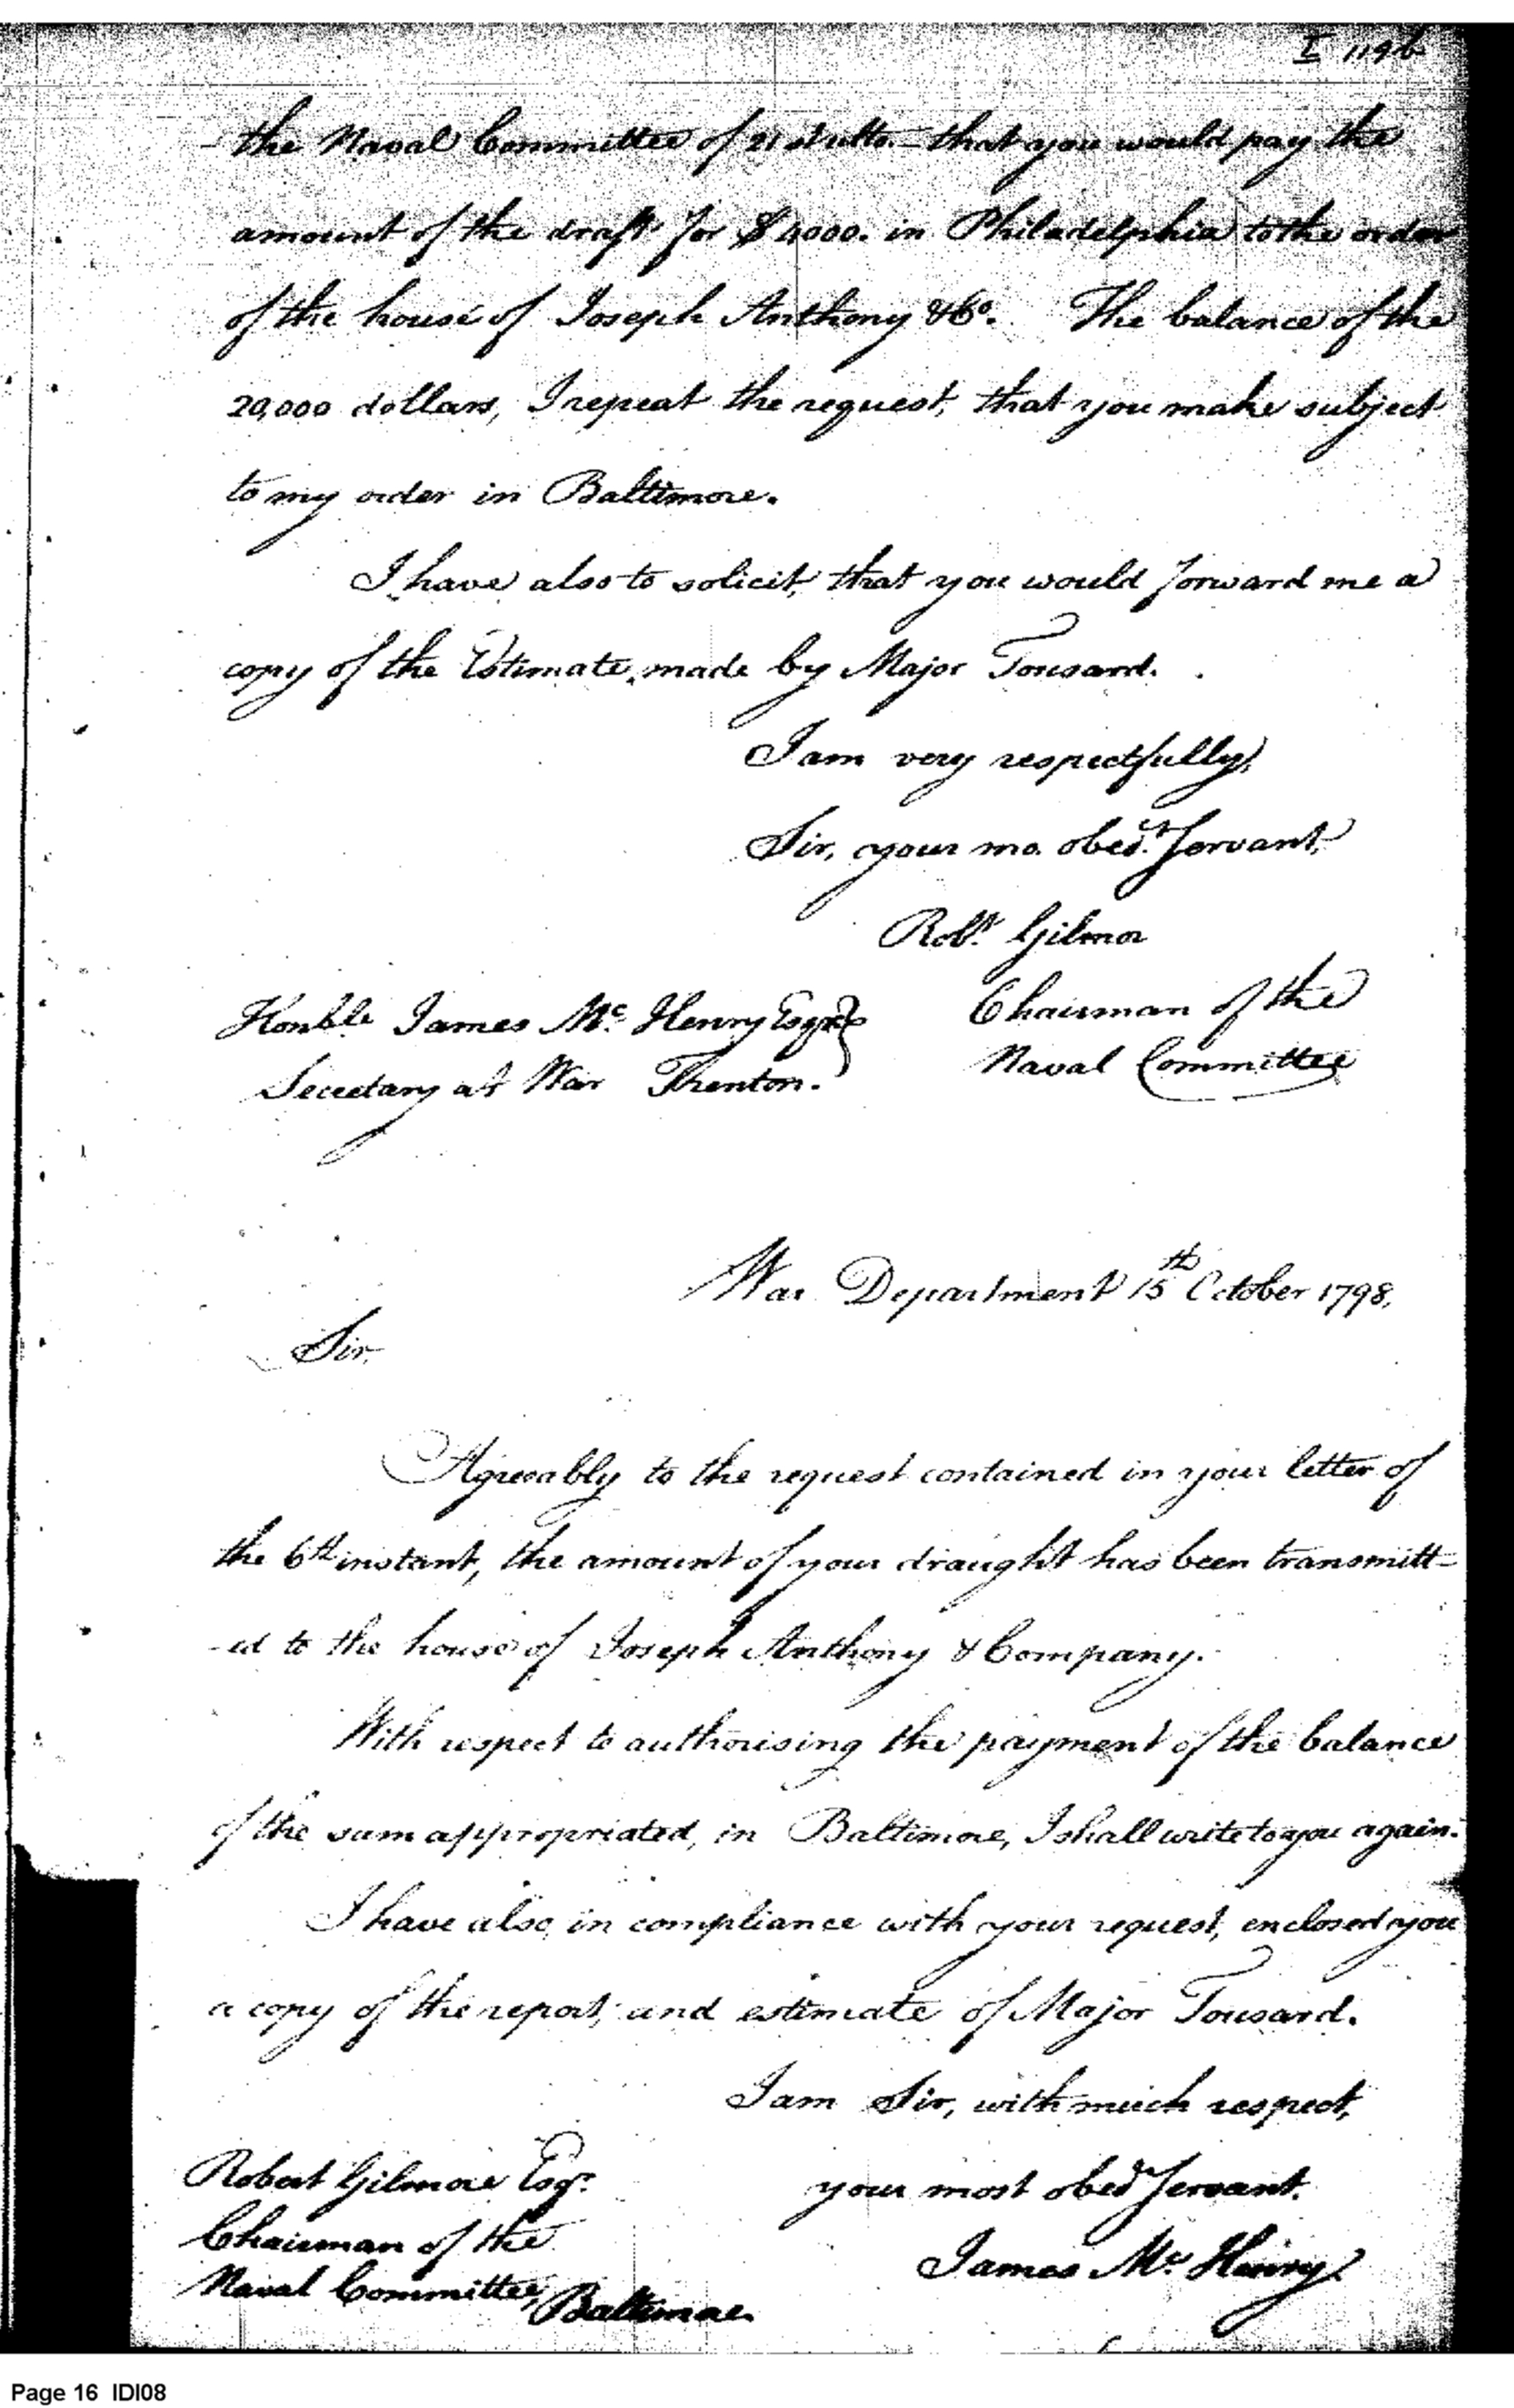 I 119b
the Naval Committee of 21st ulto. — that you would pay the
amount of the draft for $4000. in Philadelphia to the order
of the house of Joseph Anthony & Co. The balance of the
20,000 dollars, I repeat the request, that you make subject
to my order in Baltimore.
I have also to solicit, that you would forward me a
copy of the Estimate, made by Major Tousard.
I am very respectfully,
Sir, your mo. obedt. Servant,
Robt. Gilmor
Chairman of the
Naval Committee
Honble James Mc. Henry Esqre
Secretary at War Trenton.
War Department 15th October 1798.
Sir.
Agreeably to the request contained in your letter of
the 6th instant, the amount of your draught has been transmitt-
-ed to the house of Joseph Anthony & Company.
With respect to authorising the payment of the balance
of the sum appropriated, in Baltimore, I shall write to you again.
I have also, in compliance with your request, enclosed you
a copy of the report, and estimate of Major Tousard.
I am Sir, with much respect,
your most obed Servant.
James Mc. Henry
Robert Gilmore Esqr.
Chairman of the
Naval Committee, Baltimore.
Page 16 IDI08